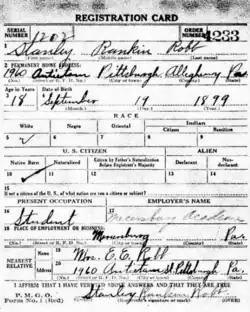 REGISTRATION CARD
SERIAL NUMBER 1202 ORDER NUMBER 4233
Stanley Rankin Robb
(First name) (Middle name) (Last name)
2 PERMANENT HOME ADDRESS:
1960 Antietam Pittsburgh, Allegheny Pa.
(No.) (Street or R. F. D. No.) (City or town) (County) (State)
Age in Years Date of Birth
18 September 19 1899
(Month.) (Day.) (Year.)
RACE
White Negro Oriental Indian
Citizen Noncitizen
5 ✓ 6 7 8 9
U. S. CITIZEN ALIEN
Native Born Naturalized Citizen by Father's Naturalization Before Registrant's Majority Declarant Non-declarant
10 ✓ 11 12 13 14
15 If not a citizen of the U. S., of what nation are you a citizen or subject?
PRESENT OCCUPATION EMPLOYER'S NAME
16 Student 17 Mercersburg Academy
18 PLACE OF EMPLOYMENT OR BUSINESS:
Mercersburg Pa.
(No.) (Street or R. F. D. No.) (City or town) (County) (State)
NEAREST RELATIVE
Name 19 Mrs. E. E. Robb
Address 20 1960 Antietam St. Pittsburgh, Pa.
(No.) (Street or R. F. D. No.) (City or town) (County) (State)
I AFFIRM THAT I HAVE VERIFIED ABOVE ANSWERS AND THAT THEY ARE TRUE
P. M. G. O.
Form No. 1 (Red) Stanley Rankin Robb